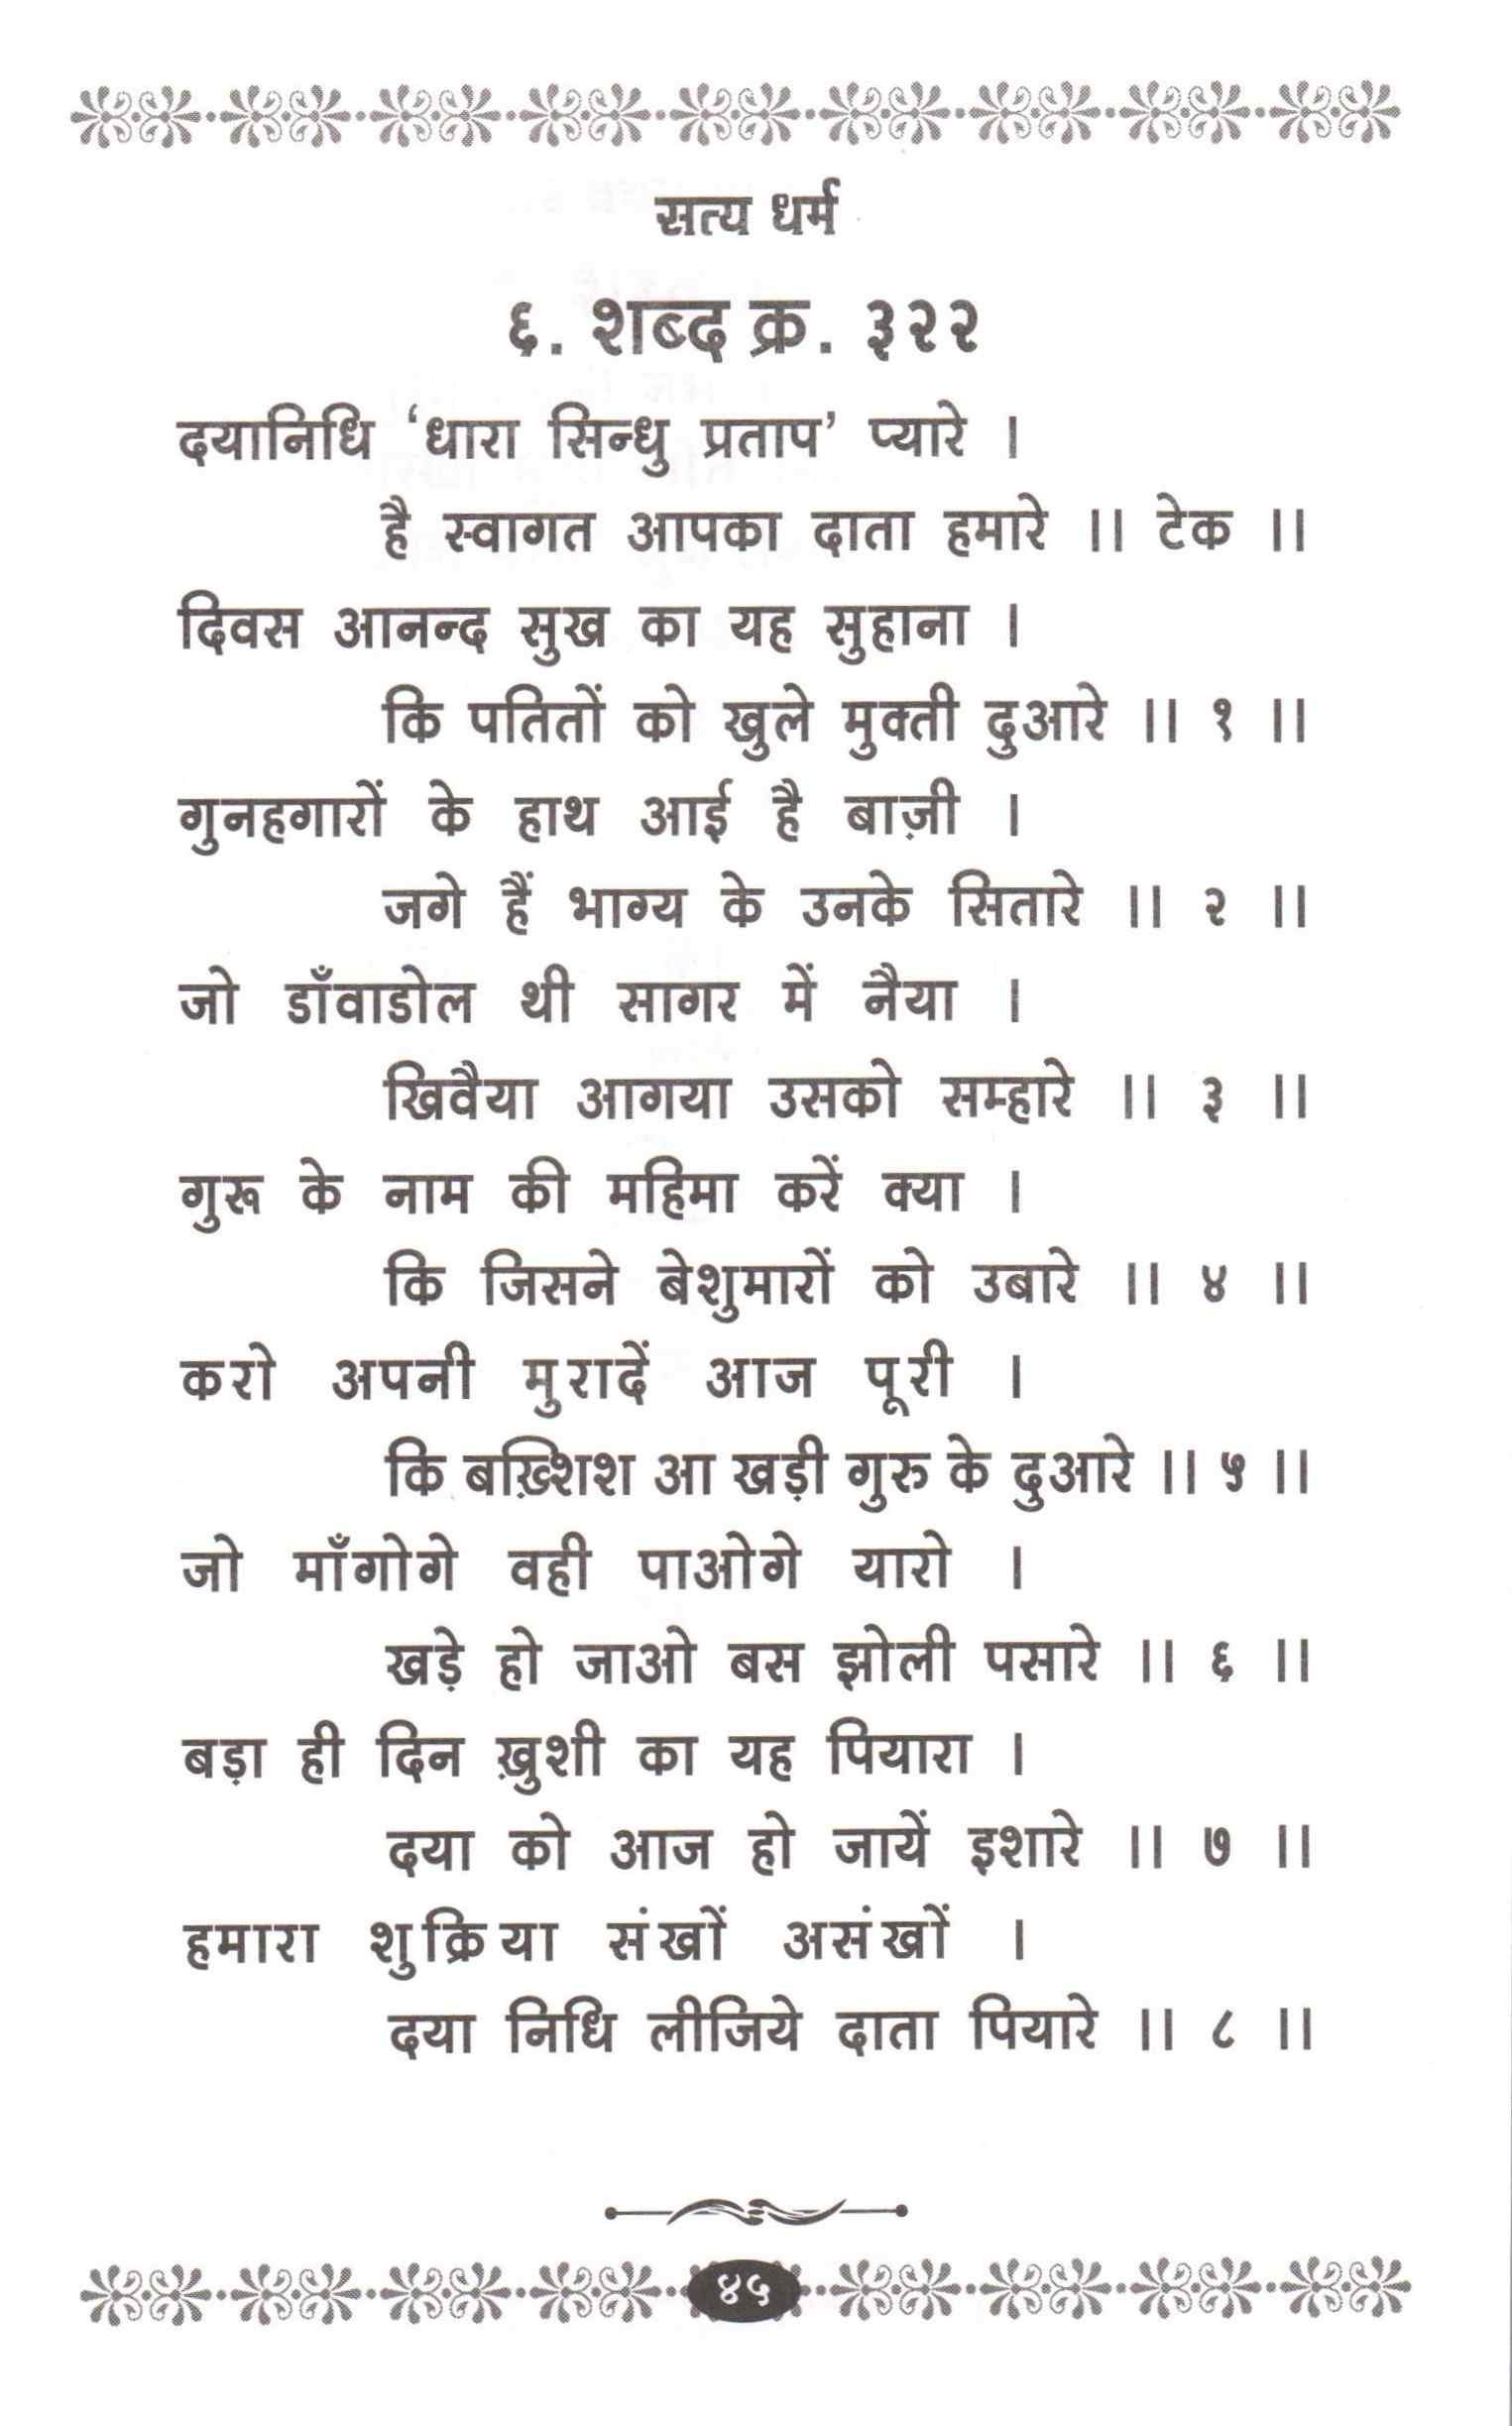 सत्य धर्म
६. शब्द क्र. ३२२
दयानिधि ‘धारा सिन्धु प्रताप’ प्यारे ।
है स्वागत आपका दाता हमारे ।। टेक ।।
दिवस आनन्द सुख का यह सुहाना ।
कि पतितों को खुले मुक्ती दुआरे ।। १ ।।
गुनहगारों के हाथ आई है बाज़ी ।
जगे हैं भाग्य के उनके सितारे ।। २ ।।
जो डाँवाडोल थी सागर में नैया ।
खिवैया आगया उसको सम्हारे ।। ३ ।।
गुरू के नाम की महिमा करें क्या ।
कि जिसने बेशुमारों को उबारे ।। ४ ।।
करो अपनी मुरादें आज पूरी ।
कि बख़्शिश आ खड़ी गुरु के दुआरे ।। ५ ।।
जो माँगोगे वही पाओगे यारो ।
खड़े हो जाओ बस झोली पसारे ।। ६ ।।
बड़ा ही दिन ख़ुशी का यह पियारा ।
दया को आज हो जायें इशारे ।। ७ ।।
हमारा शुक्रिया संखों असंखों ।
दया निधि लीजिये दाता पियारे ।। ८ ।।
४५